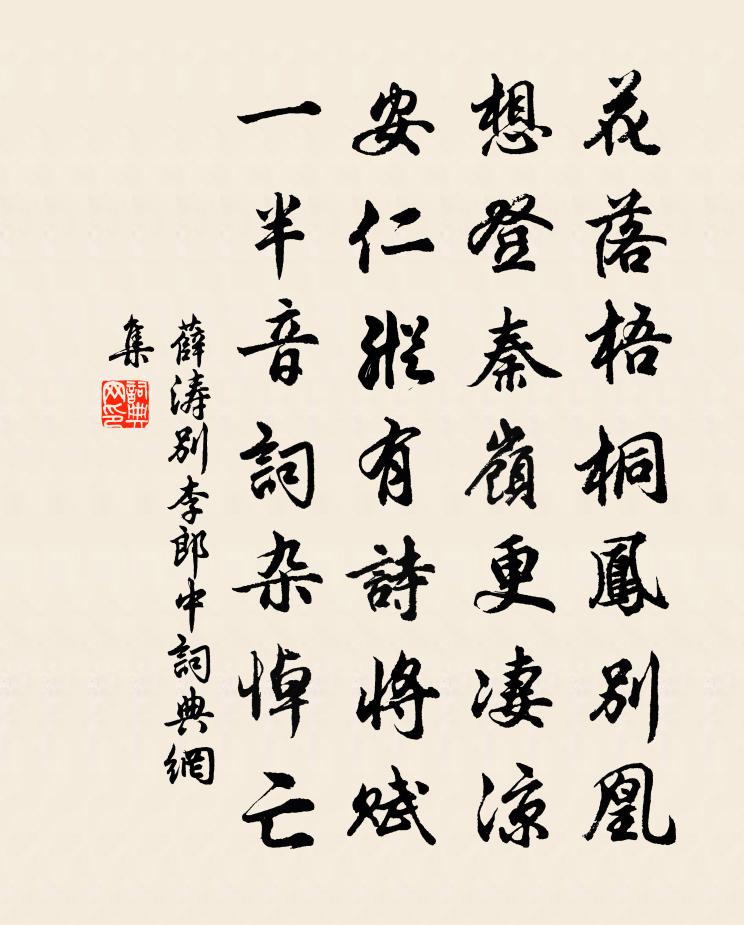 花落梧桐鳳別凰
想登秦嶺更淒涼
安仁縱有詩將賦
一半音詞杂悼亡
薛涛别李郎中詞典網
集
詞典
网印